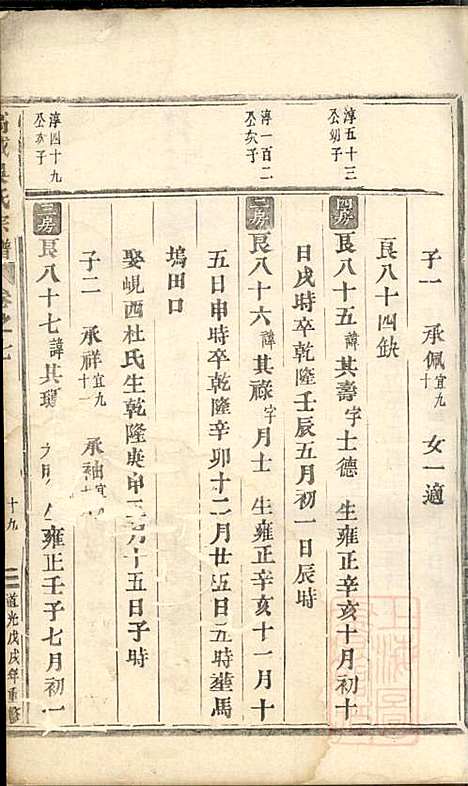 子一 承佩宜九十 女一適
良八十四缺
淳五十三 丞幼子
四房 良八十五諱其壽字士德 生雍正辛亥十月初十
日戌時卒乾隆壬辰五月初一日辰時
淳一百二 丞次子
二房 良八十六諱其祿字月士 生雍正辛亥十一月十
五日申時卒乾隆辛卯十二月廿五日丑時塟馬
塢田口
娶峴西杜氏生乾隆庚申 月十五日子時
子二 承祥宜九十一 承袖宜
淳四十九 丞次子
三房 良八十七諱其 生雍正壬子七月初一
氏宗譜 卷之七 十九 道光戊戌年重修
上海圖